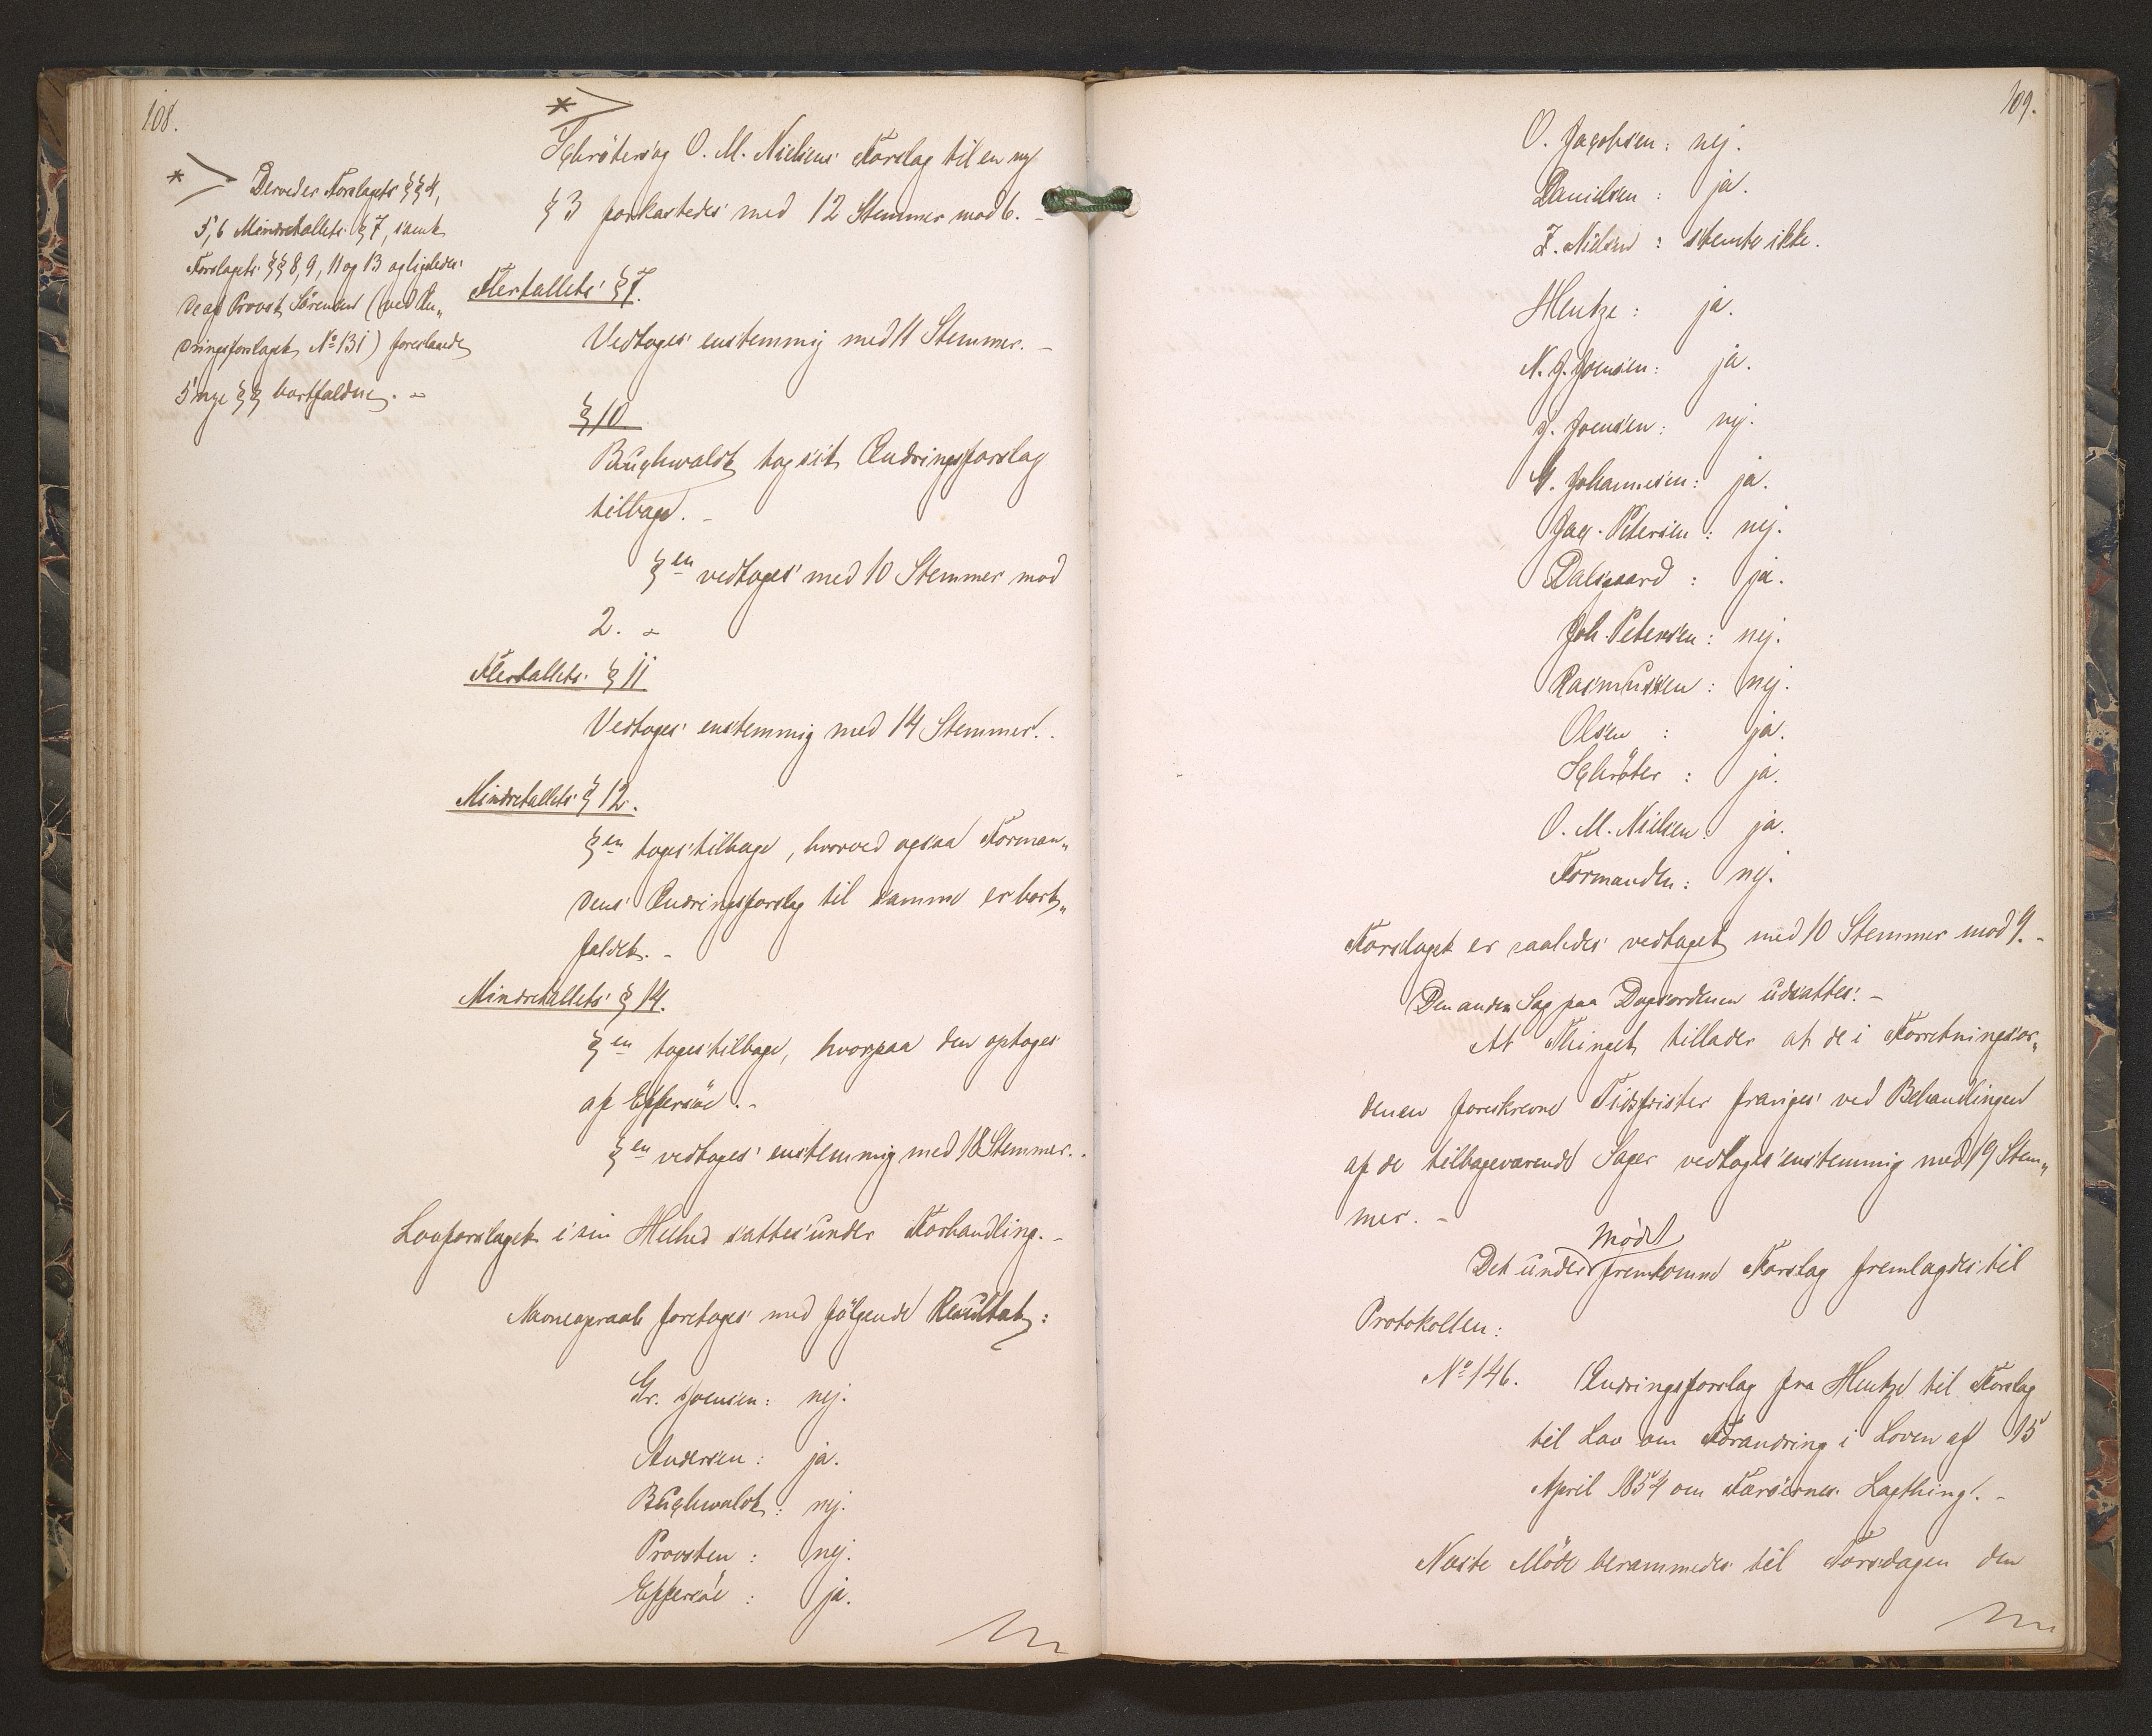 108.
*> Derved er Forslagets §§ 4,
5, 6 Mindretallets § 7, samt
Forslagets §§ 8, 9, 11 og 13 og ligeledes
de af Provst Sørensen (ved Æn„
dringsforslaget No 131) foreslaaede
5 nye §§ bortfaldne. -
*>
Schrøters og O. M. Nielsens Forslag til en ny
§ 3 forkastedes med 12 Stemmer mod 6. -
Flertallets § 7.
Vedtoges enstemmig med 11 Stemmer. -
§ 10
Buchwaldt tog sit Ændringsforslag
tilbage. -
§en vedtoges med 10 Stemmer mod
2. -
Flertallets § 11
Vedtoges enstemmig med 14 Stemmer. -
Mindretallets § 12.
§en toges tilbage, hvorved ogsaa Forman„
dens Ændringsforslag til samme er bort„
faldet. -
Mindretallets § 14.
§en toges tilbage, hvorpaa den optoges
af Effersøe. -
§en vedtoges enstemmig med 18 Stemmer. -
Lovforslaget i sin Helhed sattes under Forhandling. -
Navneopraab foretoges med følgende Resultat:
Gr. Joensen: nej.
Andersen: ja.
Buchwaldt: nej.
Provsten: nej.
Effersøe: ja.
109.
O. Jacobsen: nej.
Danielsen: ja.
Z. Nielsen: stemte ikke.
Hentze: ja.
N. J. Joensen: ja.
J. Joensen: nej.
M. Johannesen: ja.
Jac. Petersen: nej.
Dalsgaard: ja.
Joh. Petersen: nej.
Rasmussen: nej.
Olsen: ja.
Schrøter: ja.
O. M. Nielsen: ja.
Formanden: nej.
Forslaget er saaledes vedtaget med 10 Stemmer mod 9. -
Den anden Sag paa Dagsordenen udsattes. -
At Thinget tillader at de i Forretningsor„
denen foreskrevne Tidsfrister fraviges ved Behandlingen
af de tilbageværende Sager vedtoges enstemmig med 19 Stem„
mer. -
Mødet
Det under fremkomne Forslag fremlagdes til
Protokollen:
No 146. Ændringsforslag fra Hentze til Forslag
til Lov om Forandring i Loven af 15
April 1854 om Færøernes Lagthing. -
Næste Møde berammedes til Torsdagen den